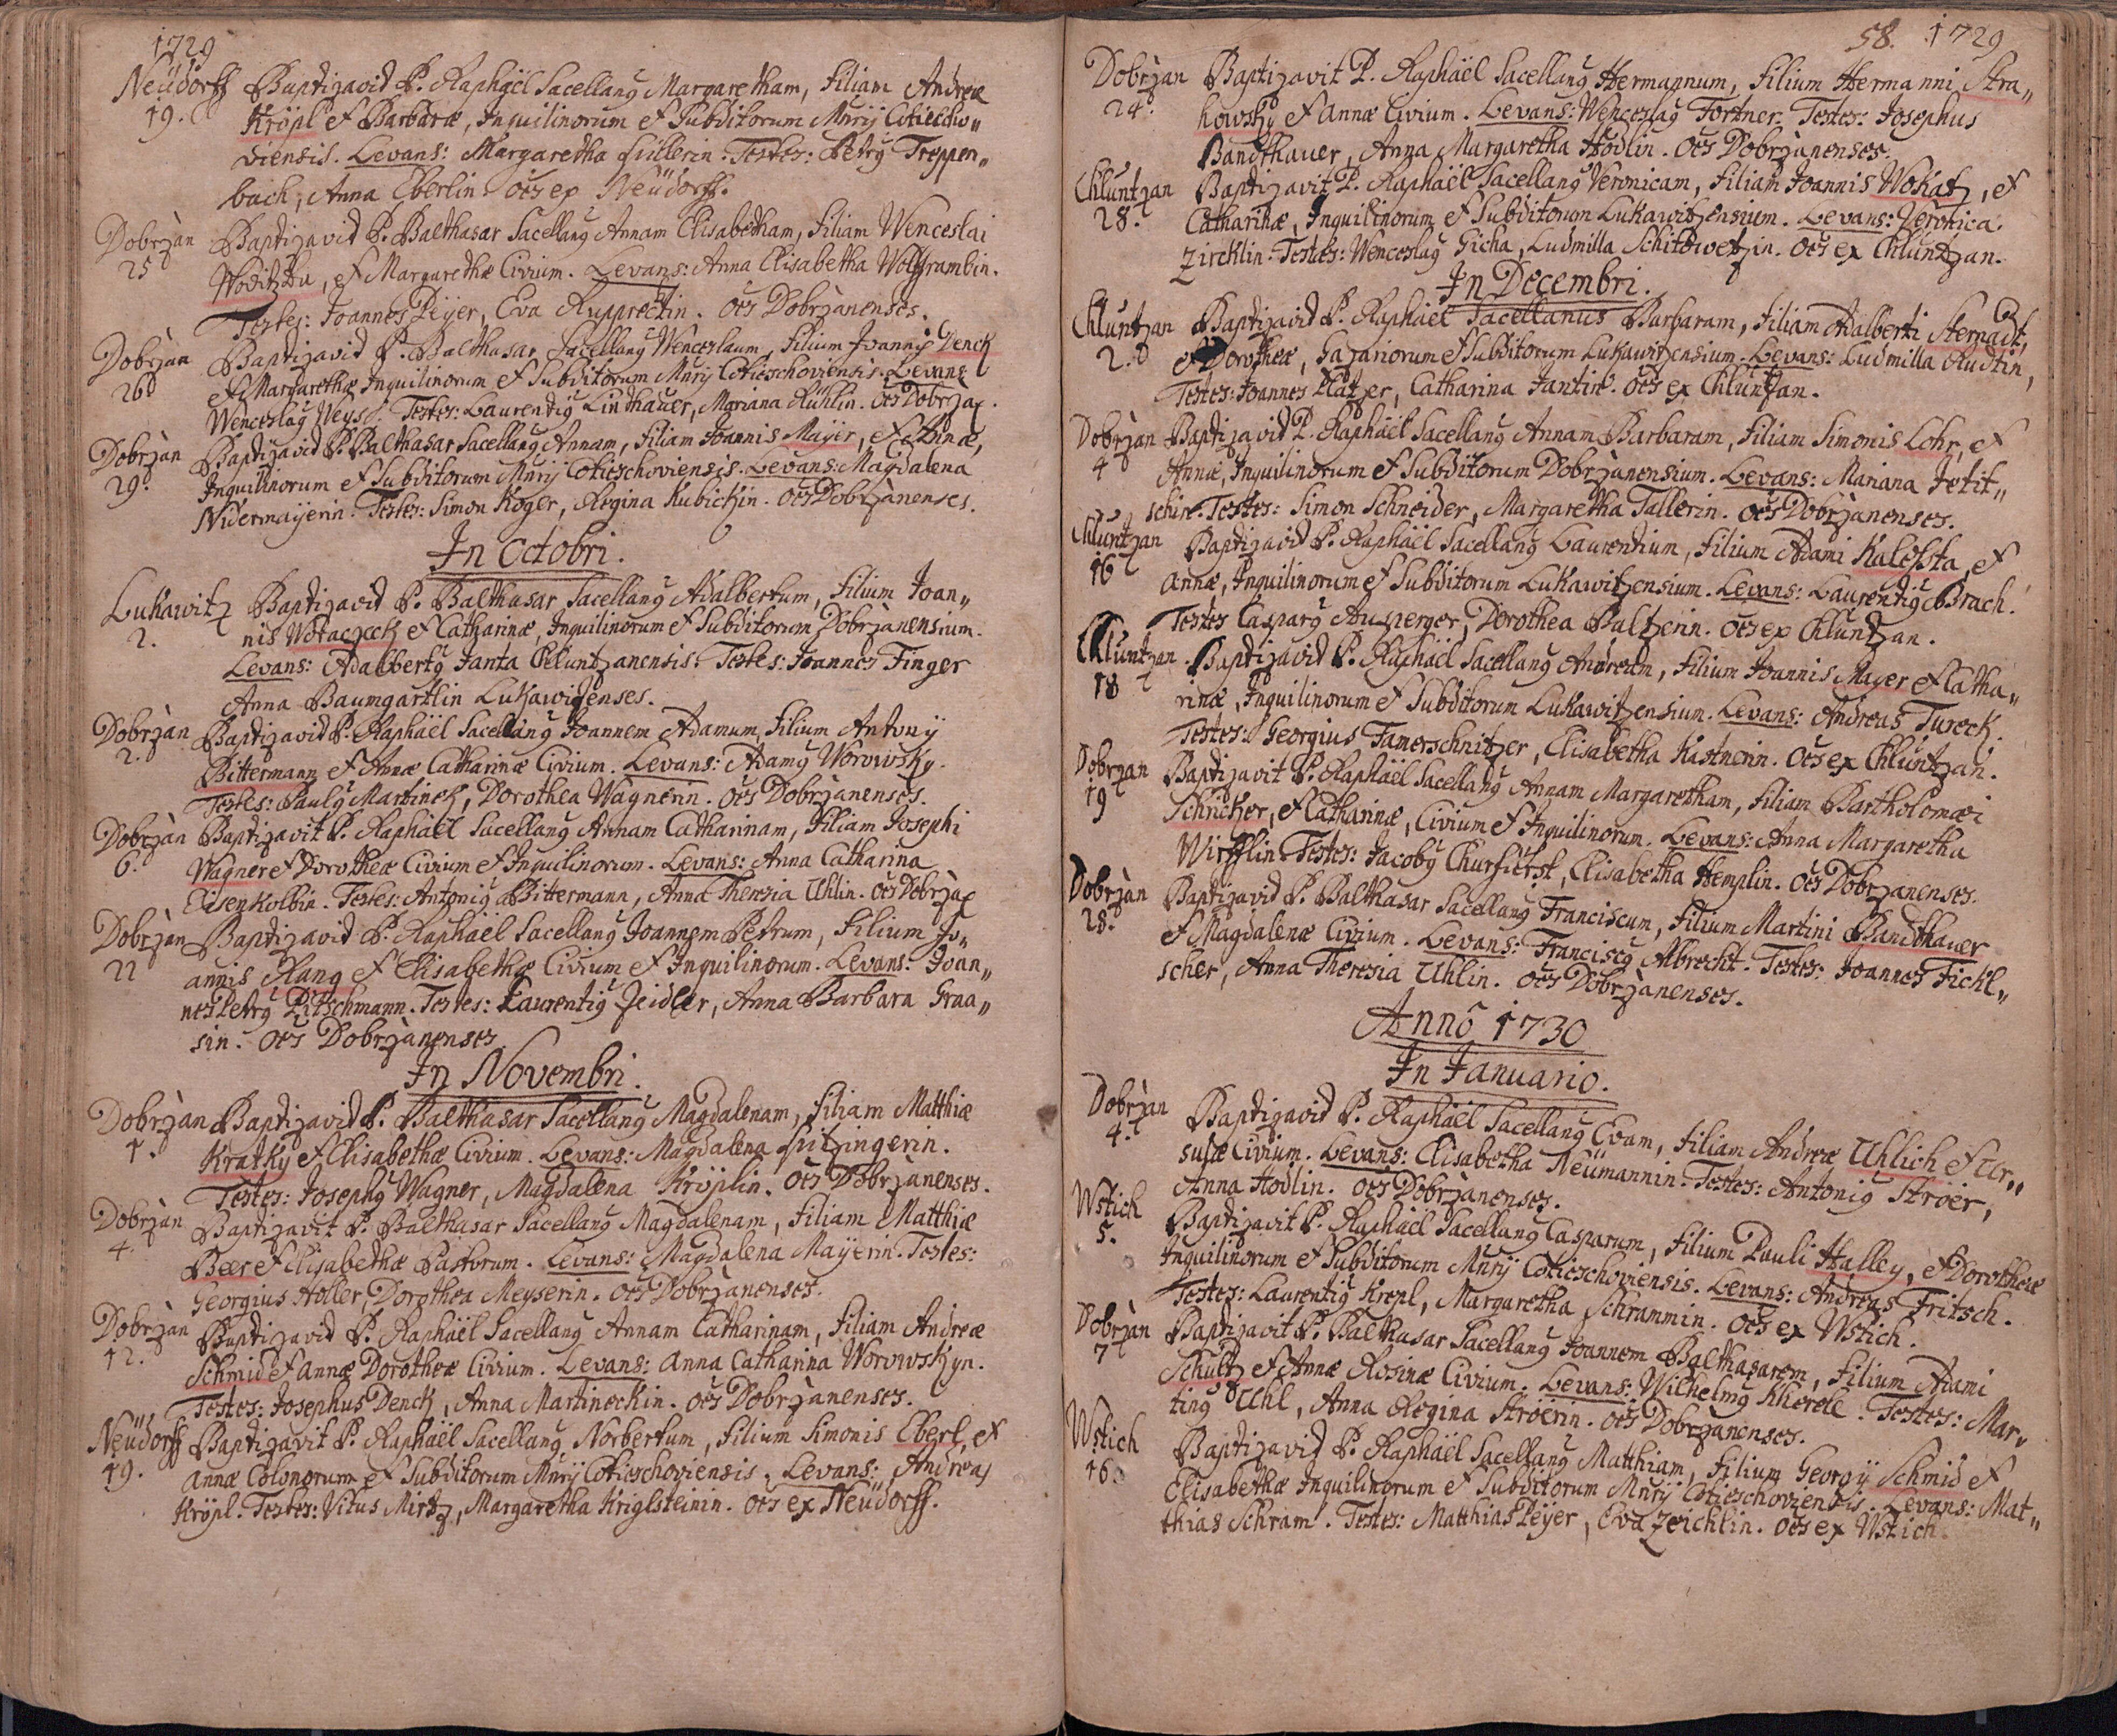 1729
Neüdorff Baptizavid P. Raphaël Sacellanꝰ Margaretham, Filiam Andreæ
19. Kröpl et Barbaræ, Inquilinorum et Subditorum Mnrij Cotiescho„
viensis. Levans: Margaretha Füllerin. Testes: Petrꝰ Treppen„
bach, Anna Eberlin. Oēs ex Neüdorff.
Dobrzàn Baptizavid P. Balthasar Sacellanꝰ Annam Elisabetham, Filiam Wenceslai
25 Woditzka, et Margarethæ Civium. Levans: Anna Elisabetha Wolfframbin.
Testes: Joannes Peÿer, Eva Rupprectin. Oēs Dobrzànenses.
Dobrzàn Baptizavid P. Balthasar Sacellanꝰ Wenceslaum, Filium Joannis Denck
26 et Margarethæ Inquilinorum et Subditorum Mnrij Cotieschoviensis. Levans
Wenceslaꝰ Neys. Testes: Laurentiꝰ Lindthauer, Mariana Rühlin. Oēs Dobrzaꝫ.
Dobrzàn Baptizavid P. Balthasar Sacellanꝰ Annam, Filiam Joannis Mayer, et Annæ,
29. Inquilinorum et Subditorum Mnrij Cotieschoviensis. Levans: Magdalena
Nidermaÿerin. Testes: Simon Koger, Regina Kubickin. Oēs Dobrzànenses.
In Octobri.
Lukawitz Baptizavid P. Balthasar Sacellanꝰ Adalbertum, Filium Joan„
2. nis Wotaczeck et Catharinæ, Inquilinorum et Subditorum Dobrzànensium.
Levans: Adalbertꝰ Janta Chluntzanensis. Testes: Joannes Finger
Anna Baumgartlin Lukawizenses.
Dobrzàn Baptizavid P. Raphaël Sacellanꝰ Joannem Adamum, Filium Antonÿ
2. Bittermann et Annæ Catharinæ Civium. Levans: Adamꝰ Worowsky.
Testes: Paulꝰ Martinek, Dorothea Wagnerin. Oēs Dobrzànenses.
Dobrzàn Baptizavit P. Raphaël Sacellanꝰ Annam Catharinam, Filiam Josephi
6. Wagner et Dorotheæ Civium et Inquilinorum. Levans: Anna Catharina
Eisenkolbin. Testes: Antoniꝰ Bittermann, Anna Theresia Uhlin. Oēs Dobrzaꝫ
Dobrzàn Baptizavid P. Raphaël Sacellanꝰ Joannem Petrum, Filium Jo„
22 annis Rang et Elisabethæ Civium et Inquilinorum. Levans: Joan„
nes Petrꝰ Pitschmann. Testes: Laurentiꝰ Zeidler, Anna Barbara Graa„
sin. Oēs Dobrzànenses
In Novembri.
Dobrzàn Baptizavid P. Balthasar Sacellanꝰ Magdalenam, Filiam Matthiæ
1. Kratky et Elisabethæ Civium. Levans: Magdalena Spitzingerin.
Testes: Josephꝰ Wagner, Magdalena Kröplin. Oēs Dobrzànenses.
Dobrzàn Baptizavit P. Balthasar Sacellanꝰ Magdalenam, Filiam Matthiæ
4. Beer et Elisabethæ Pastorum. Levans: Magdalena Mayerin. Testes:
Georgius Holler, Dorothea Meyserin. Oēs Dobrzànenses.
Dobrzàn Baptizavid P. Raphaël Sacellanꝰ Annam Catharinam, Filiam Andreæ
12. Schmid et Annæ Dorotheæ Civium. Levans: Anna Catharina Worowskyn.
Testes: Josephus Denck, Anna Martineckin. Oēs Dobrzànenses.
Neüdorff Baptizavit P. Raphaël Sacellanꝰ Norbertum, Filium Simonis Eberl, et
19. Annæ Colonorum et Subditorum Mnrij Cotieschoviensis. Levans: Andreas
Kröpl. Testes: Vitus Mirtz, Margaretha Kriglsteinin. Oēs ex Neüdorff.
58. 1729
Dobrzan Baptizavit P. Raphaël Sacellanꝰ Hermannum, Filium Hermanni Stra„
24. howsky et Annæ Civium. Levans: Wenceslaꝰ Fortner. Testes: Josephus
Bandthauer, Anna Margaretha Hodlin. Oēs Dobrzànenses.
Chluntzan Baptizavit P. Raphaël Sacellanꝰ Veronicam, Filiam Joannis Wokatz, et
28. Catharinæ, Inquilinorum et Subditorum Lukawitzensium. Levans: Veronica
Zirchlin. Testes: Wenceslaꝰ Gicha, Ludmilla Schitowetzin. Oēs ex Chluntzan.
In Decembri.
Chluntzan Baptizavid P. Raphaël Sacellanus Barbaram, Filiam Adalberti Sternadt,
2. et Dorotheæ, Hazariorum et Subditorum Lukawitzensium. Levans: Ludmilla Rudtin,
Testes: Joannes Platzer, Catharina Jantin. Oēs ex Chluntzan.
Dobrzàn Baptizavid P. Raphaël Sacellanꝰ Annam Barbaram, Filiam Simonis Lohr, et
4 Annæ, Inquilinorum et Subditorum Dobrzànensium. Levans: Mariana Jetit„
schin. Testes: Simon Schneider, Margaretha Tallerin. Oēs Dobrzànenses.
Chluntzan Baptizavid P. Raphaël Sacellanꝰ Laurentium, Filium Adami Kalessta, et
16 Annæ, Inquilinorum et Subditorum Lukawitzensium. Levans: Laurentiꝰ Brach.
Testes Casparꝰ Ausperger, Dorothea Baltzerin. Oēs ex Chluntzan.
Chluntzan. Baptizavid P. Raphaël Sacellanꝰ Andream, Filium Joannis Mayer et Catha„
18 rinæ, Inquilinorum et Subditorum Lukawitzensium. Levans: Andreas Tureck.
Testes: Georgius Famerschnitzer, Elisabetha Kastnerin. Oēs ex Chluntzan.
Dobrzan Baptizavit P. Raphaël Sacellanꝰ Annam Margaretham, Filiam Bartholomæi
19 Schricker, et Catharinæ, Civium et Inquilinorum. Levans: Anna Margaretha
Wirfflin. Testes: Jacobꝰ Churfürst, Elisabetha Hemplin. Oēs Dobrzanenses.
Dobrzàn Baptizavid P. Balthasar Sacellanꝰ Franciscum, Filium Martini Bandthauer
28. et Magdalenæ Civium. Levans: Franciscꝰ Albrecht. Testes: Joannes Fickl„
scher, Anna Theresia Uhlin. Oēs Dobrzànenses.
Annô 1730
In Januario.
Dobrzan Baptizavid P. Raphaël Sacellanꝰ Evam, Filiam Andreæ Uhlich et Ur„
4. sulæ Civium. Levans: Elisabetha Neümannin. Testes: Antoniꝰ Ströer,
Anna Hodlin. Oēs Dobrzanenses.
Wstich Baptizavit P. Raphaël Sacellanꝰ Casparum, Filium Pauli Halley, et Dorotheæ
5. Inquilinorum et Subditorum Mnrij Cotieschoviensis. Levans: Andreas Fritsch.
Testes: Laurentiꝰ Krepl, Margaretha Schrammin. Oēs ex Wstich.
Dobrzàn Baptizavit P. Balthasar Sacellanꝰ Joannem Balthasarem, Filium Adami
7 Schultz et Annæ Rosinæ Civium. Levans: Wilhelmꝰ Kherele. Testes: Mar„
tinꝰ Uhl, Anna Regina Ströerin. Oēs Dobrzanenses.
Wstich Baptizavid P. Raphaël Sacellanꝰ Matthiam, Filium Georgÿ Schmid et
16. Elisabethæ Inquilinorum et Subditorum Mnrij Cotieschoviensis. Levans: Mat„
thias Schram. Testes: Matthias Peÿer, Eva Zeichlin. Oēs ex Wstich.